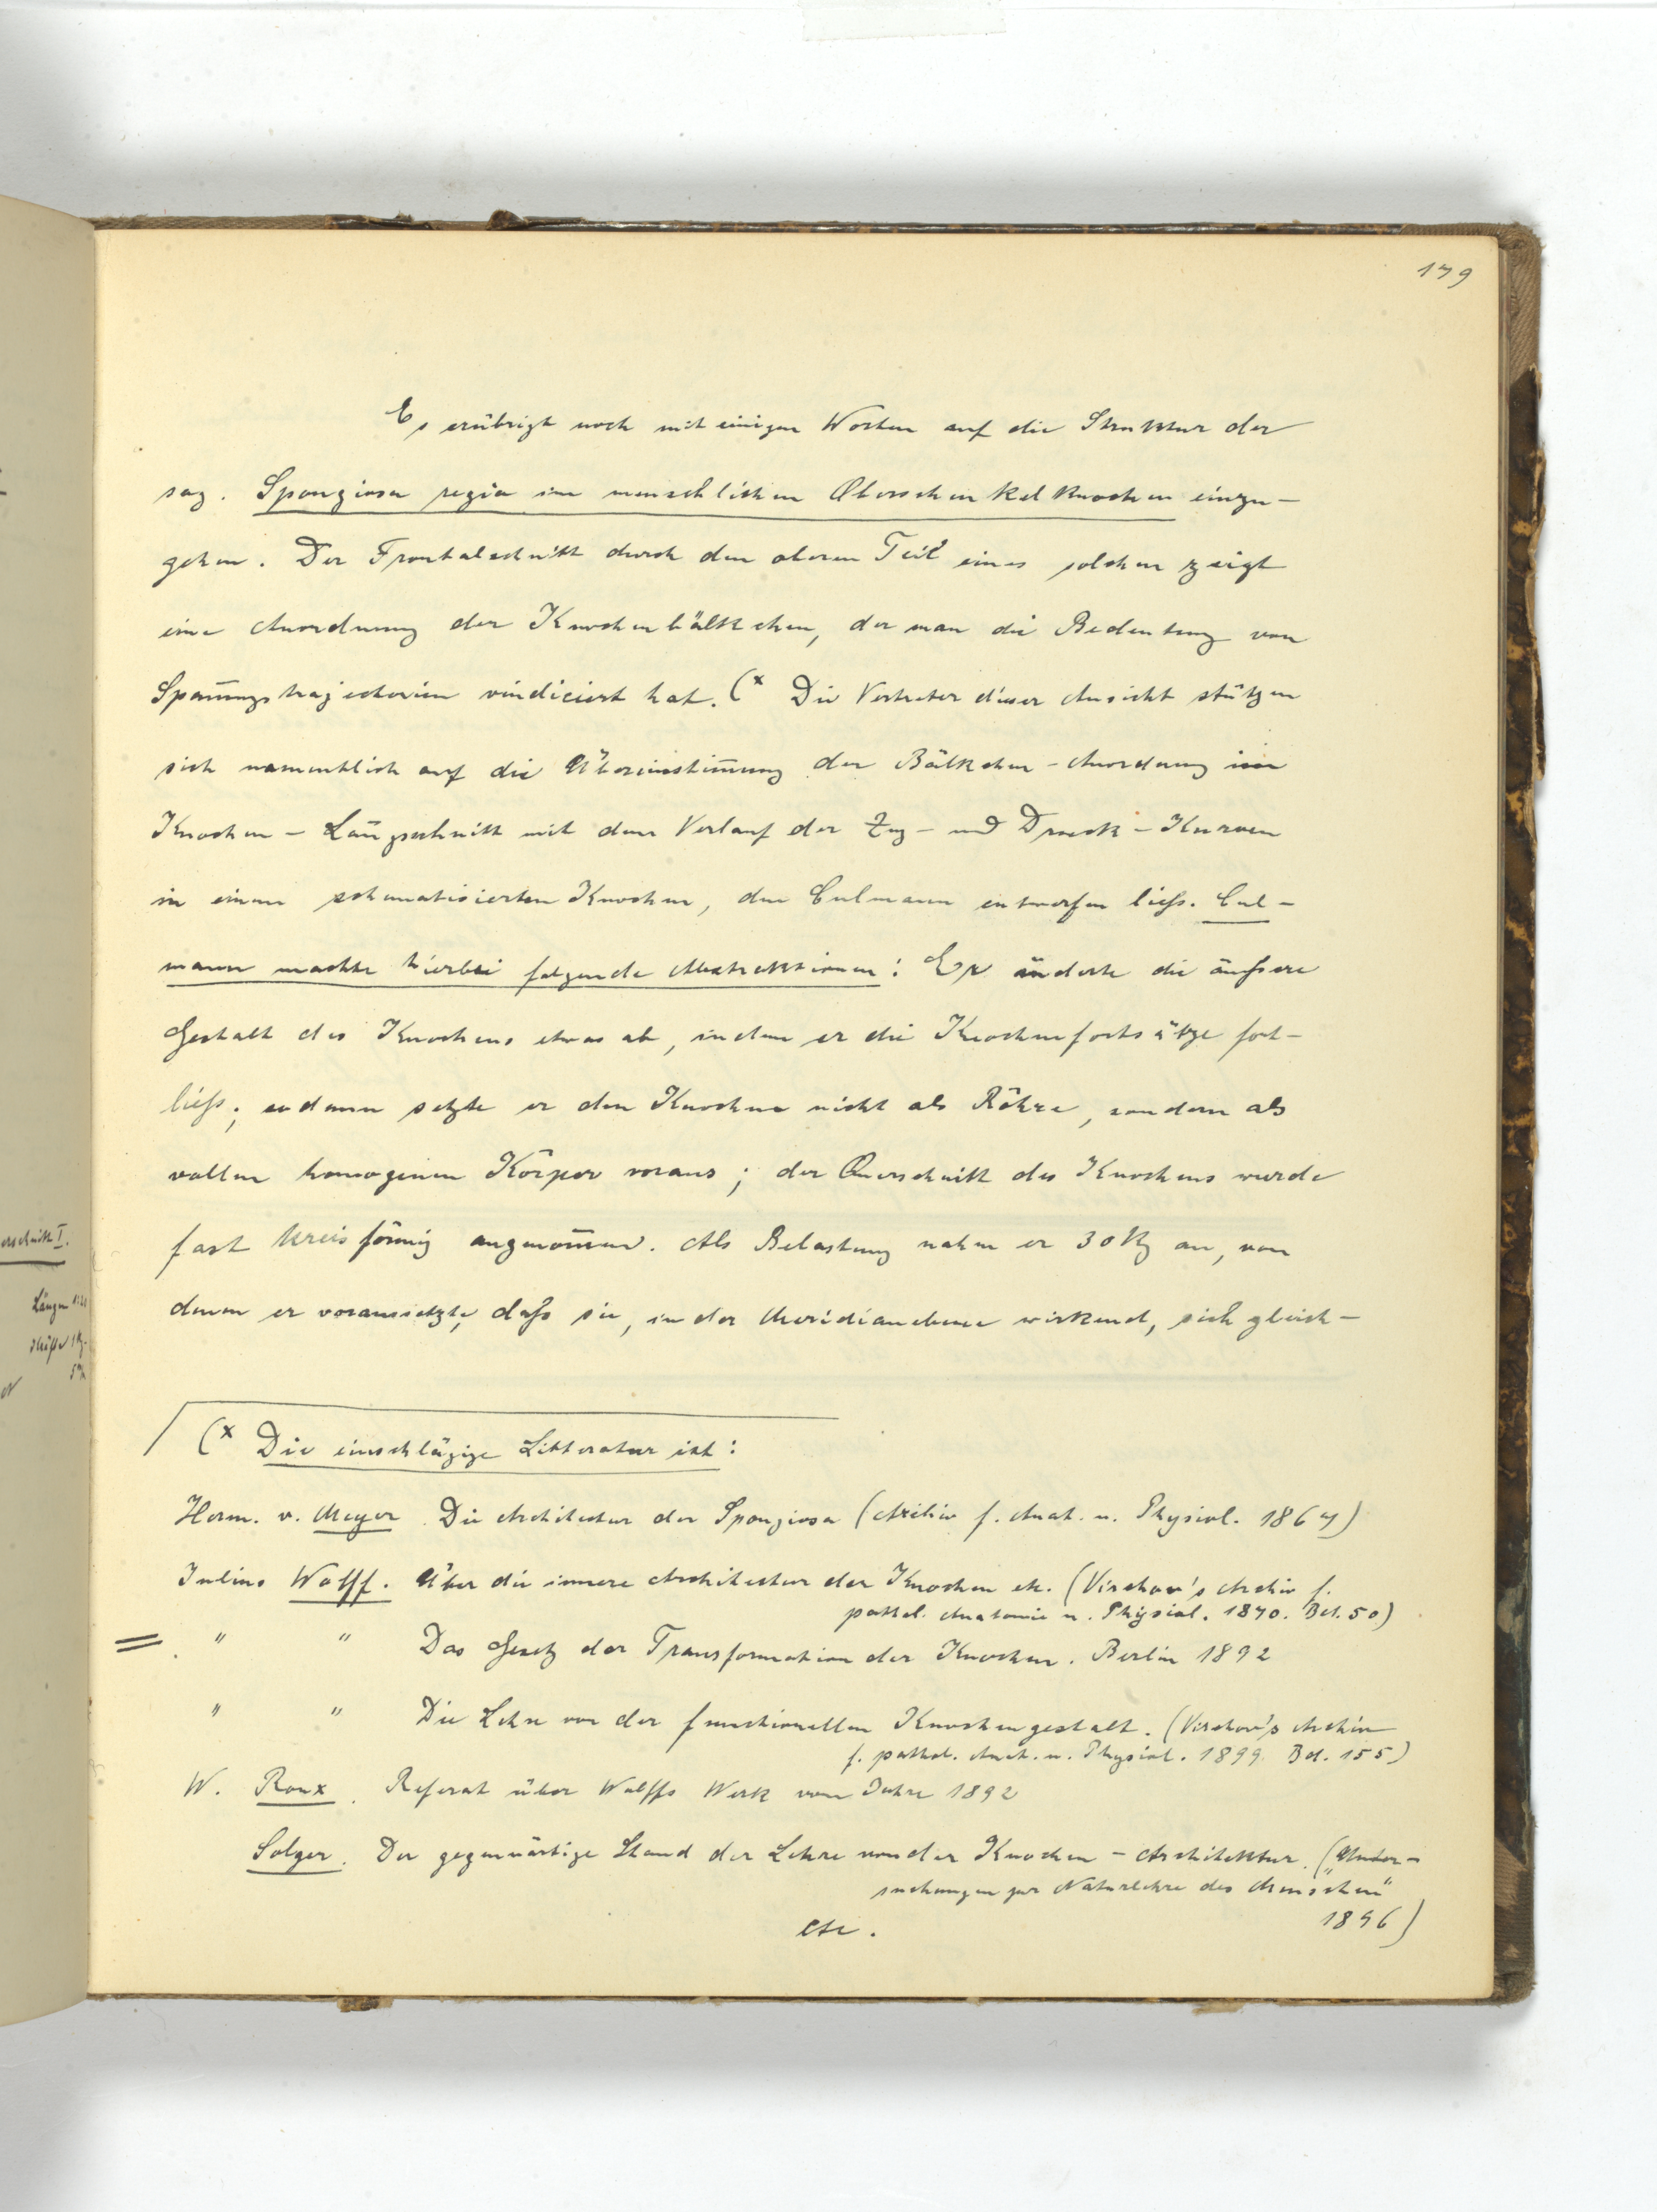 179
Es erübrigt noch mit einigen Worten auf die Struktur der
sog. Spongiosa regia im menschlichen Oberschenkelknochen einzu-
gehen. Der Frontalschnitt durch den oberen Teil eines solchen zeigt
eine Anordnung der Knochenbälkchen, der man die Bedeutung von
Span̄ungstrajectorien vindiciert hat. (x Die Vertreter dieser Ansicht stützen
sich namentlich auf die Übereinstim̄ung der Bälkchen-Anordnung im
Knochen-Längsschnitt mit dem Verlauf der Zug- und Druck-Kurven
in einem schematisierten Knochen, den Culmann entwerfen liess. Cul-
mann machte hierbei folgende Abstraktionen: Er änderte die äußere
Gestalt des Knochens etwas ab, indem er die Knochenfortsätze fort-
liess; sodann setzte er den Knochen nicht als Röhre, sondern als
vollen homogenen Körper voraus; der Querschnitt des Knochens wurde
fast kreisförmig angenom̄en. Als Belastung nahm er 30 Kg an, von
denen er voraussetzte, daß sie, in der Meridianebene wirkend, sich gleich-
(x Die einschlägige Litteratur ist:
Herm. v. Meyer. Die Architectur der Spongiosa (Archiv f. Anat. u. Physiol. 1867)
Julius Wolff. Über die innere Architectur der Knochen etc. (Virchow's Archiv f.
pathol. Anatomie u. Physiol. 1870. Bd. 50)
= " " Das Gesetz der Transformation der Knochen. Berlin 1892
" " Die Lehre von der functionellen Knochengestalt. (Virchow's Archiv
f. pathol. Anat. u. Physiol. 1899. Bd. 155)
W. Roux. Referat über Wolffs Werk vom Jahre 1892
Solger. Der gegenwärtige Stand der Lehre von der Knochen-Architektur. („Unter-
suchungen zur Naturlehre des Menschen"
1896)
etc.